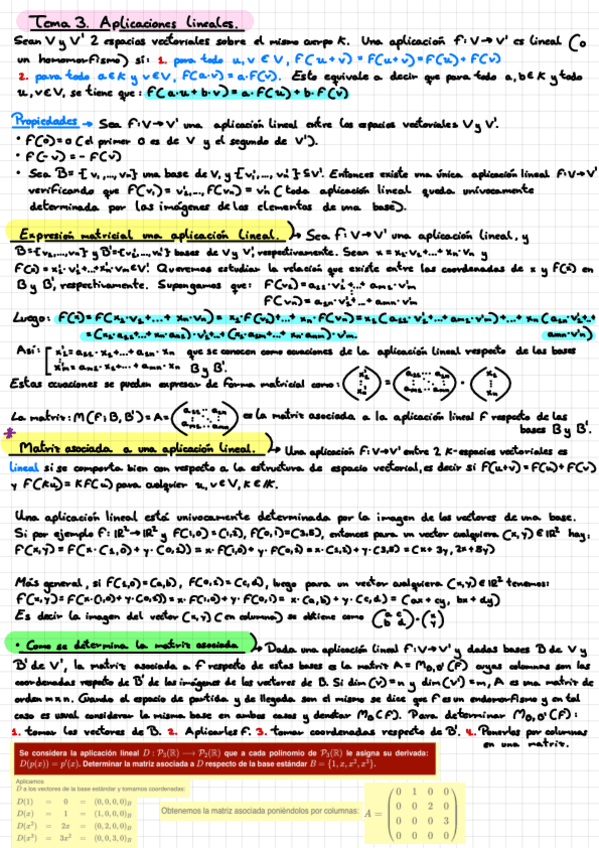 Tema 3. Aplicaciones lineales.
Sean V y V' 2 espacios vectoriales sobre el mismo cuerpo K. Una aplicación f: V→V' es lineal (o
un homomorfismo) si: 1. para todo u, v ∈ V, F(u+v) = F(u+v) = F(u) + F(v)
2. para todo a∈K y v∈V, F(a·v) = a·F(v). Esto equivale a decir que para todo a, b∈K y todo
u, v∈V, se tiene que: F(a·u+b·v) = a·F(u)+b·F(v)
Propiedades → Sea F: V→V' una aplicación lineal entre los espacios vectoriales V y V'.
• F(0)=0 (el primer 0 es de V y el segundo de V').
• F(-v) = -F(v)
• Sea B={v₁,...,vn} una base de V, y {v'₁,...,v'n} ⊆ V'. Entonces existe una única aplicación lineal F: V→V'
verificando que F(v₁) = v'₁,..., F(vn) = v'n (toda aplicación lineal queda unívocamente
determinada por las imágenes de los elementos de una base).
Expresión matricial una aplicación lineal. → Sea f: V→V' una aplicación lineal, y
B={v₁,...,vn} y B'={v'₁,...,v'm} bases de V y V', respectivamente. Sean x = x₁·v₁+...+xn·vn y
F(x) = x'₁·v'₁+...+x'm·v'm∈V'. Queremos estudiar la relación que existe entre las coordenadas de x y F(x) en
B y B', respectivamente. Supongamos que: F(v₁) = a₁₁·v'₁+...+am₁·v'm
F(vn) = a₁n·v'₁+...+amn·v'm
Luego: F(x) = F(x₁·v₁+...+xn·vn) = x₁·F(v₁)+...+xn·F(vn) = x₁(a₁₁·v'₁+...+am₁·v'm)+...+xn(a₁n·v'₁+...+
=(x₁·a₁₁+...+xn·a₁n)·v'₁+...+(x₁·am₁+...+xn·amn)·v'm. amn·v'm)
Así: x'₁ = a₁₁·x₁+...+a₁n·xn que se conocen como ecuaciones de la aplicación lineal respecto de las bases
x'm = am₁·x₁+...+amn·xn B y B'.
Estas ecuaciones se pueden expresar de forma matricial como: (x'₁ ⋮ x'm) = (a₁₁ ... a₁n ⋮ am₁ ... amn) · (x₁ ⋮ xn)
La matriz: M(F; B, B') = A = (a₁₁ ... a₁n ⋮ am₁ ... amn) es la matriz asociada a la aplicación lineal F respecto de las
bases B y B'.
* Matriz asociada a una aplicación lineal. → Una aplicación F: V→V' entre 2 K-espacios vectoriales es
lineal si se comporta bien con respecto a la estructura de espacio vectorial, es decir si F(u+v) = F(u)+F(v)
y F(Ku) = KF(u) para cualquier u, v∈V, K∈K.
Una aplicación lineal está unívocamente determinada por la imagen de los vectores de una base.
Si por ejemplo f: ℝ²→ℝ² y F(1,0) = (1,2), F(0,1)=(3,5), entonces para un vector cualquiera (x,y)∈ℝ² hay:
F(x,y) = F(x·(1,0)+y·(0,1)) = x·F(1,0)+y·F(0,1) = x·(1,2)+y·(3,5) = (x+3y, 2x+5y)
Más general, si F(1,0) = (a,b), F(0,1) = (c,d), luego para un vector cualquiera (x,y)∈ℝ² tenemos:
F(x,y) = F(x·(1,0)+y·(0,1)) = x·F(1,0)+y·F(0,1) = x·(a,b)+y·(c,d) = (ax+cy, bx+dy)
Es decir la imagen del vector (x,y) (en columna) se obtiene como (a c b d)·(x y)
• Como se determina la matriz asociada → Dada una aplicación lineal F: V→V' y dadas bases B de V y
B' de V', la matriz asociada a F respecto de estas bases es la matriz A = M_B,B'(F) cuyas columnas son las
coordenadas respecto de B' de las imágenes de los vectores de B. Si dim(V) = n y dim(V') = m, A es una matriz de
orden m×n. Cuando el espacio de partida y de llegada son el mismo se dice que F es un endomorfismo y en tal
caso es usual considerar la misma base en ambos casos y denotar M_B(F). Para determinar M_B,B'(F):
1. tomar los vectores de B. 2. Aplicarles F. 3. tomar coordenadas respecto de B'. 4. Ponerlos por columnas
en una matriz.
Se considera la aplicación lineal D : P₃(ℝ) ⟶ P₃(ℝ) que a cada polinomio de P₃(ℝ) le asigna su derivada:
D(p(x)) = p'(x). Determinar la matriz asociada a D respecto de la base estándar B = {1, x, x², x³}.
Aplicamos
D a los vectores de la base estándar y tomamos coordenadas:
D(1) = 0 = (0,0,0,0)B
D(x) = 1 = (1,0,0,0)B
D(x²) = 2x = (0,2,0,0)B
D(x³) = 3x² = (0,0,3,0)B
Obtenemos la matriz asociada poniéndolos por columnas: A =
0 1 0 0
0 0 2 0
0 0 0 3
0 0 0 0